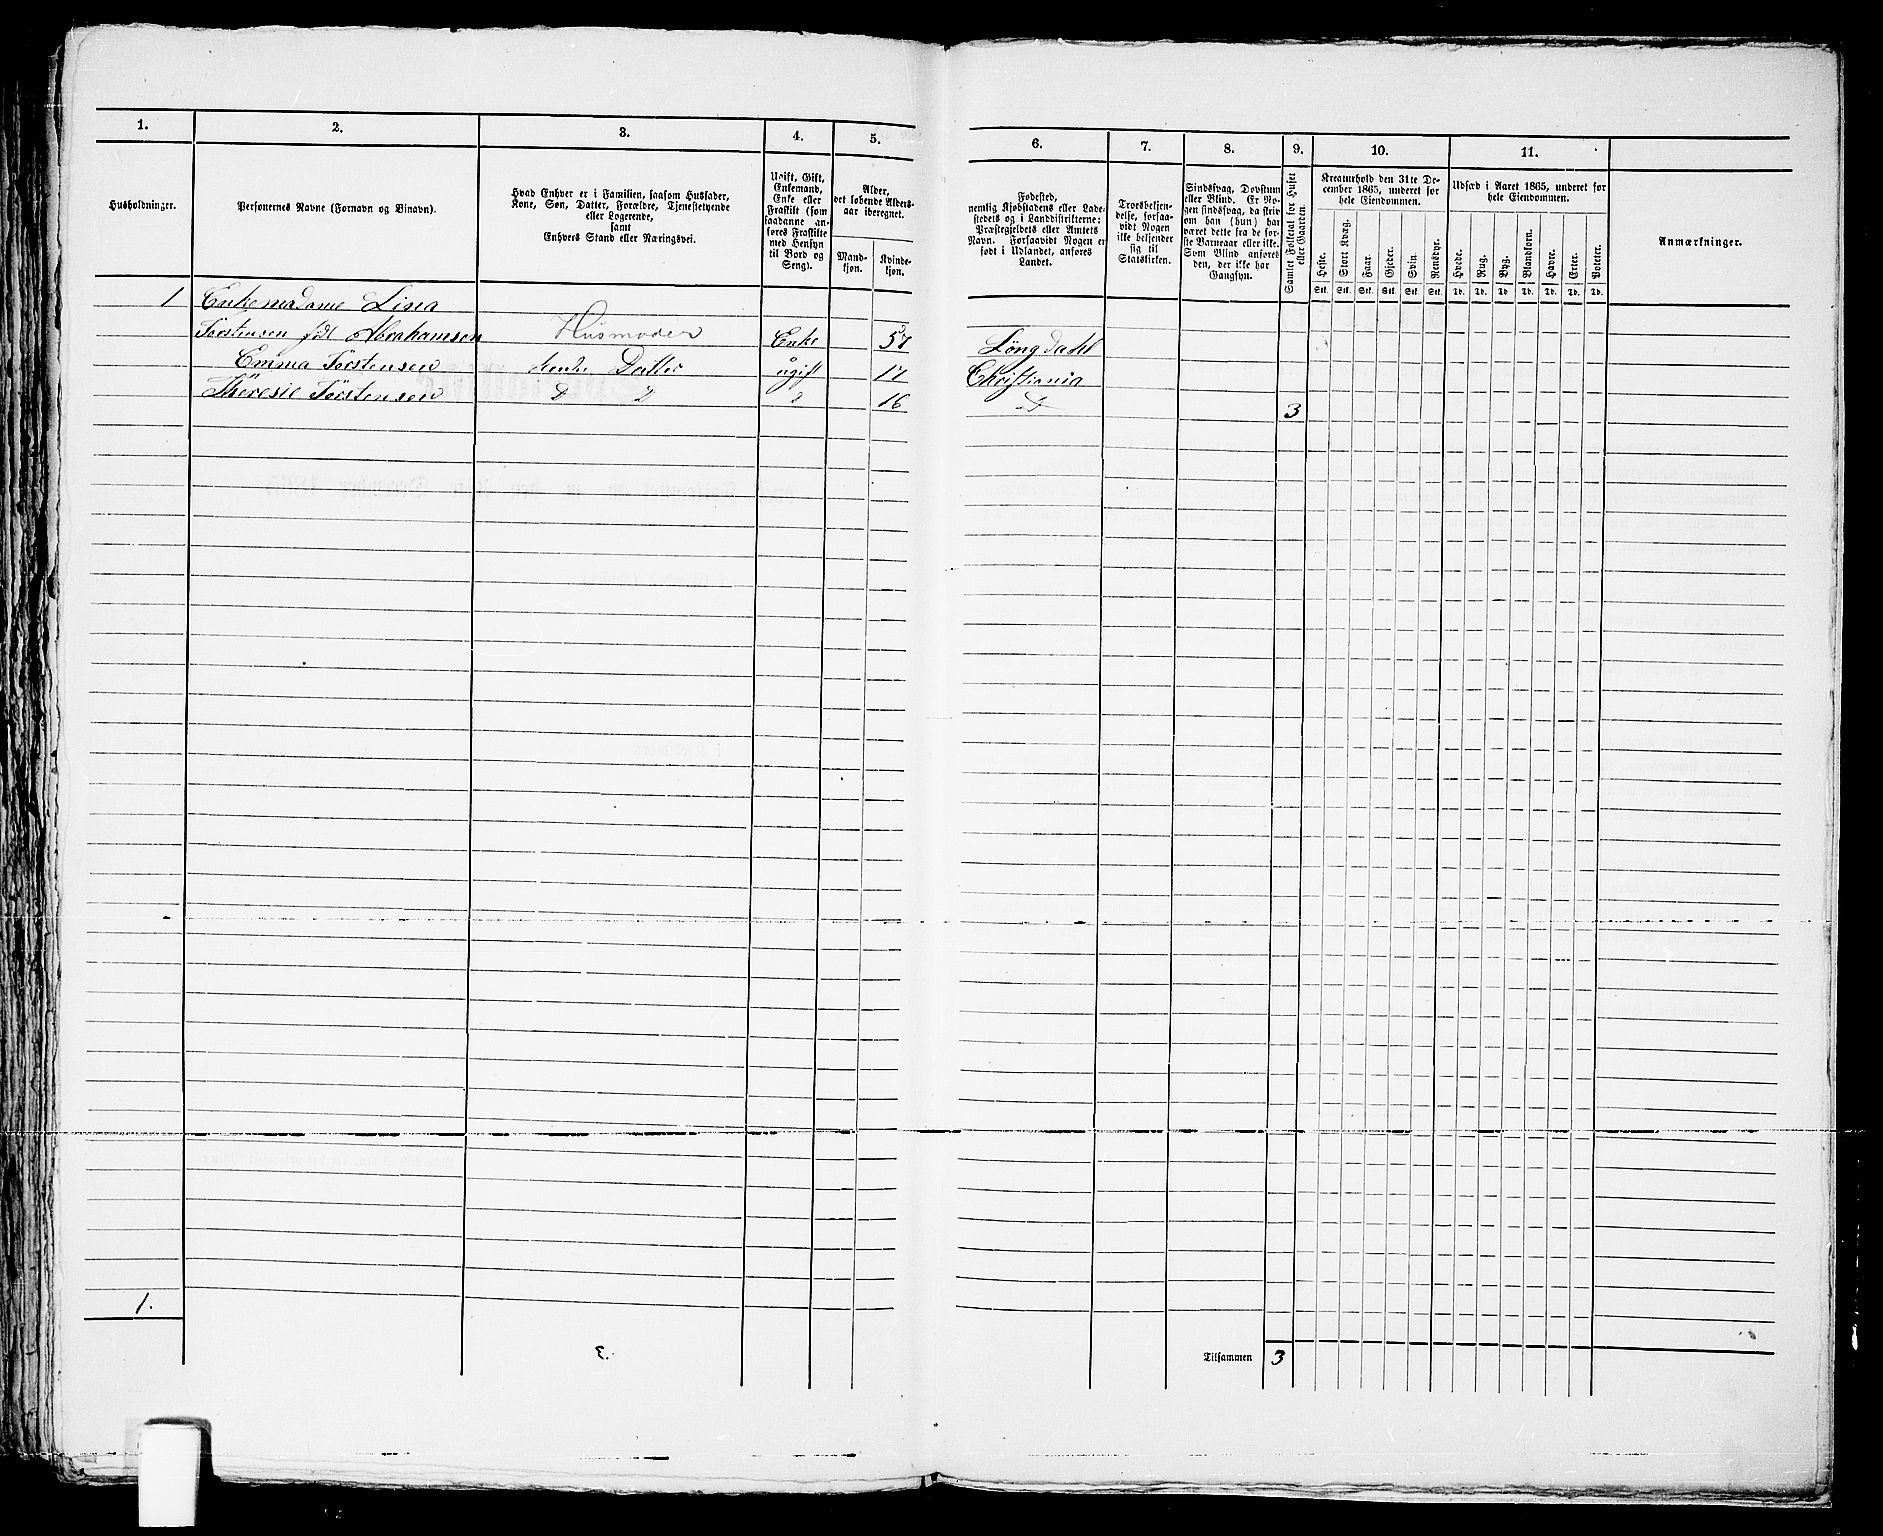 1.
2.
3.
4.
5.
6.
7.
8.
9.
10.
11.
Husholdninger.
Personernes Navne (Fornavn og Binavn).
Hvad Enhver er i Familien, saasom Husfader,
Kone, Søn, Datter, Forældre, Tjenestetyende
eller Logerende,
samt
Enhvers Stand eller Næringsvei.
Ugift, Gift,
Enkemand,
Enke eller
Fraskilt (som
saadanne an-
føres Fraskilte
med Hensyn
til Bord og
Seng).
Alder,
det løbende Alders-
aar iberegnet.
Mand-
kjøn.
Kvinde-
kjøn.
Fødested,
nemlig Kjøbstadens eller Lade-
stedets og i Landdistrikterne:
Præstegjeldets eller Amtets
Navn. Forsaavidt Nogen er
født i Udlandet, anføres
Landet.
Troesbekjen-
delse, forsaa-
vidt Nogen
ikke bekjender
sig til
Statskirken.
Sindssvag, Døvstum
eller Blind. Er No-
gen sindssvag, da skriv
om han (hun) har
været dette fra de før-
ste Barneaar eller ikke.
Som Blind anføres
den, der ikke har
Gangsyn.
Samlet Folketal for Huset
eller Gaarden.
Kreaturhold den 31te De-
cember 1865, underet for
hele Eiendommen.
Heste.
Stort Kvæg.
Faar.
Gjeder.
Svin.
Rensdyr.
Stk. Stk. Stk. Stk. Stk. Stk.
Udsæd i Aaret 1865, underet for
hele Eiendommen.
Hvede.
Rug.
Byg.
Blandkorn.
Havre.
Erter.
Poteter.
Td. Td. Td. Td. Td. Td. Td.
Anmærkninger.
1 Enkemadame Lisa
Törstensen fdt Abrahamsen Husmoder Enke 57 Löngdahl
Emma Törstensen Datter ugift 17 Christiania
Theresie Törstensen D D D 16 D 3
1.
3.
Tilsammen 3